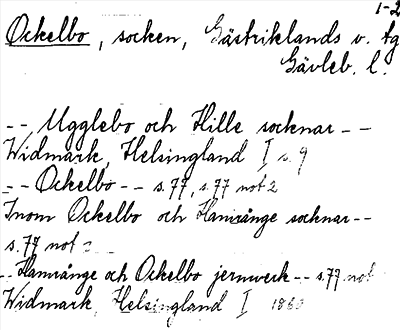 1-2
Ockelbo, socken, Gästriklands v. tg
Gävleb. l.
-- Ugglebo och Hille socknar --
Widmark, Helsingland I s. 9
-- Ockelbo -- s. 77, s. 77 not 2
Inom Ockelbo och Hamrånge socknar --
s. 77 not
-- Hamrånge och Ockelbo jernwerk -- s. 77 not
Widmark, Helsingland I 1860